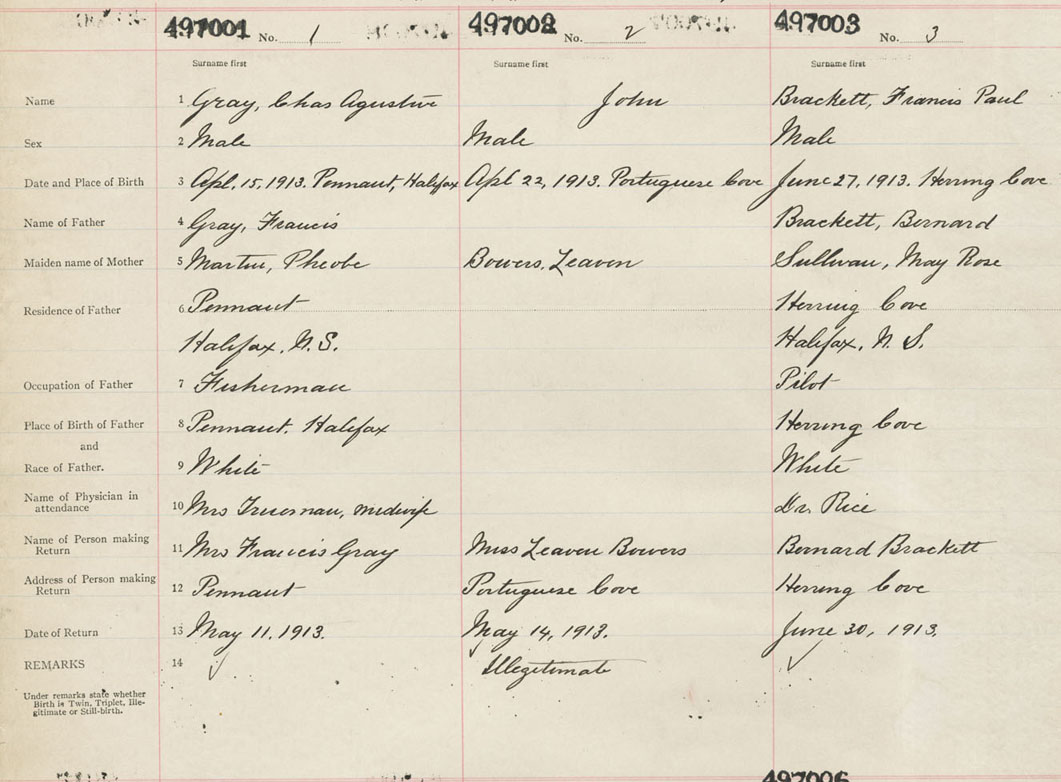 497001 No. 1 497002 No. 2 497003 No. 3
Surname first Surname first Surname first
Name 1 Gray, Chas Agustive John Brackett, Francis Paul
Sex 2 Male Male Male
Date and Place of Birth 3 Apl. 15, 1913. Pennant, Halifax Apl 22, 1913. Portuguese Cove June 27, 1913. Herring Cove
Name of Father 4 Gray, Francis Brackett, Bernard
Maiden name of Mother 5 Martin, Pheobe Bowers, Leaven Sullivan, May Rose
Residence of Father 6 Pennant Herring Cove
Halifax, N.S. Halifax, N.S.
Occupation of Father 7 Fisherman Pilot
Place of Birth of Father 8 Pennant. Halifax Herring Cove
and
Race of Father. 9 White White
Name of Physician in
attendance 10 Mrs midwife Dr. Rice
Name of Person making
Return 11 Mrs Francis Gray Miss Leaven Bowers Bernard Brackett
Address of Person making
Return 12 Pennant Portuguese Cove Herring Cove
Date of Return 13 May 11, 1913. May 14, 1913. June 30, 1913.
REMARKS 14 Illegitimate
Under remarks state whether
Birth is Twin, Triplet, Ille-
gitimate or Still-birth.
497006